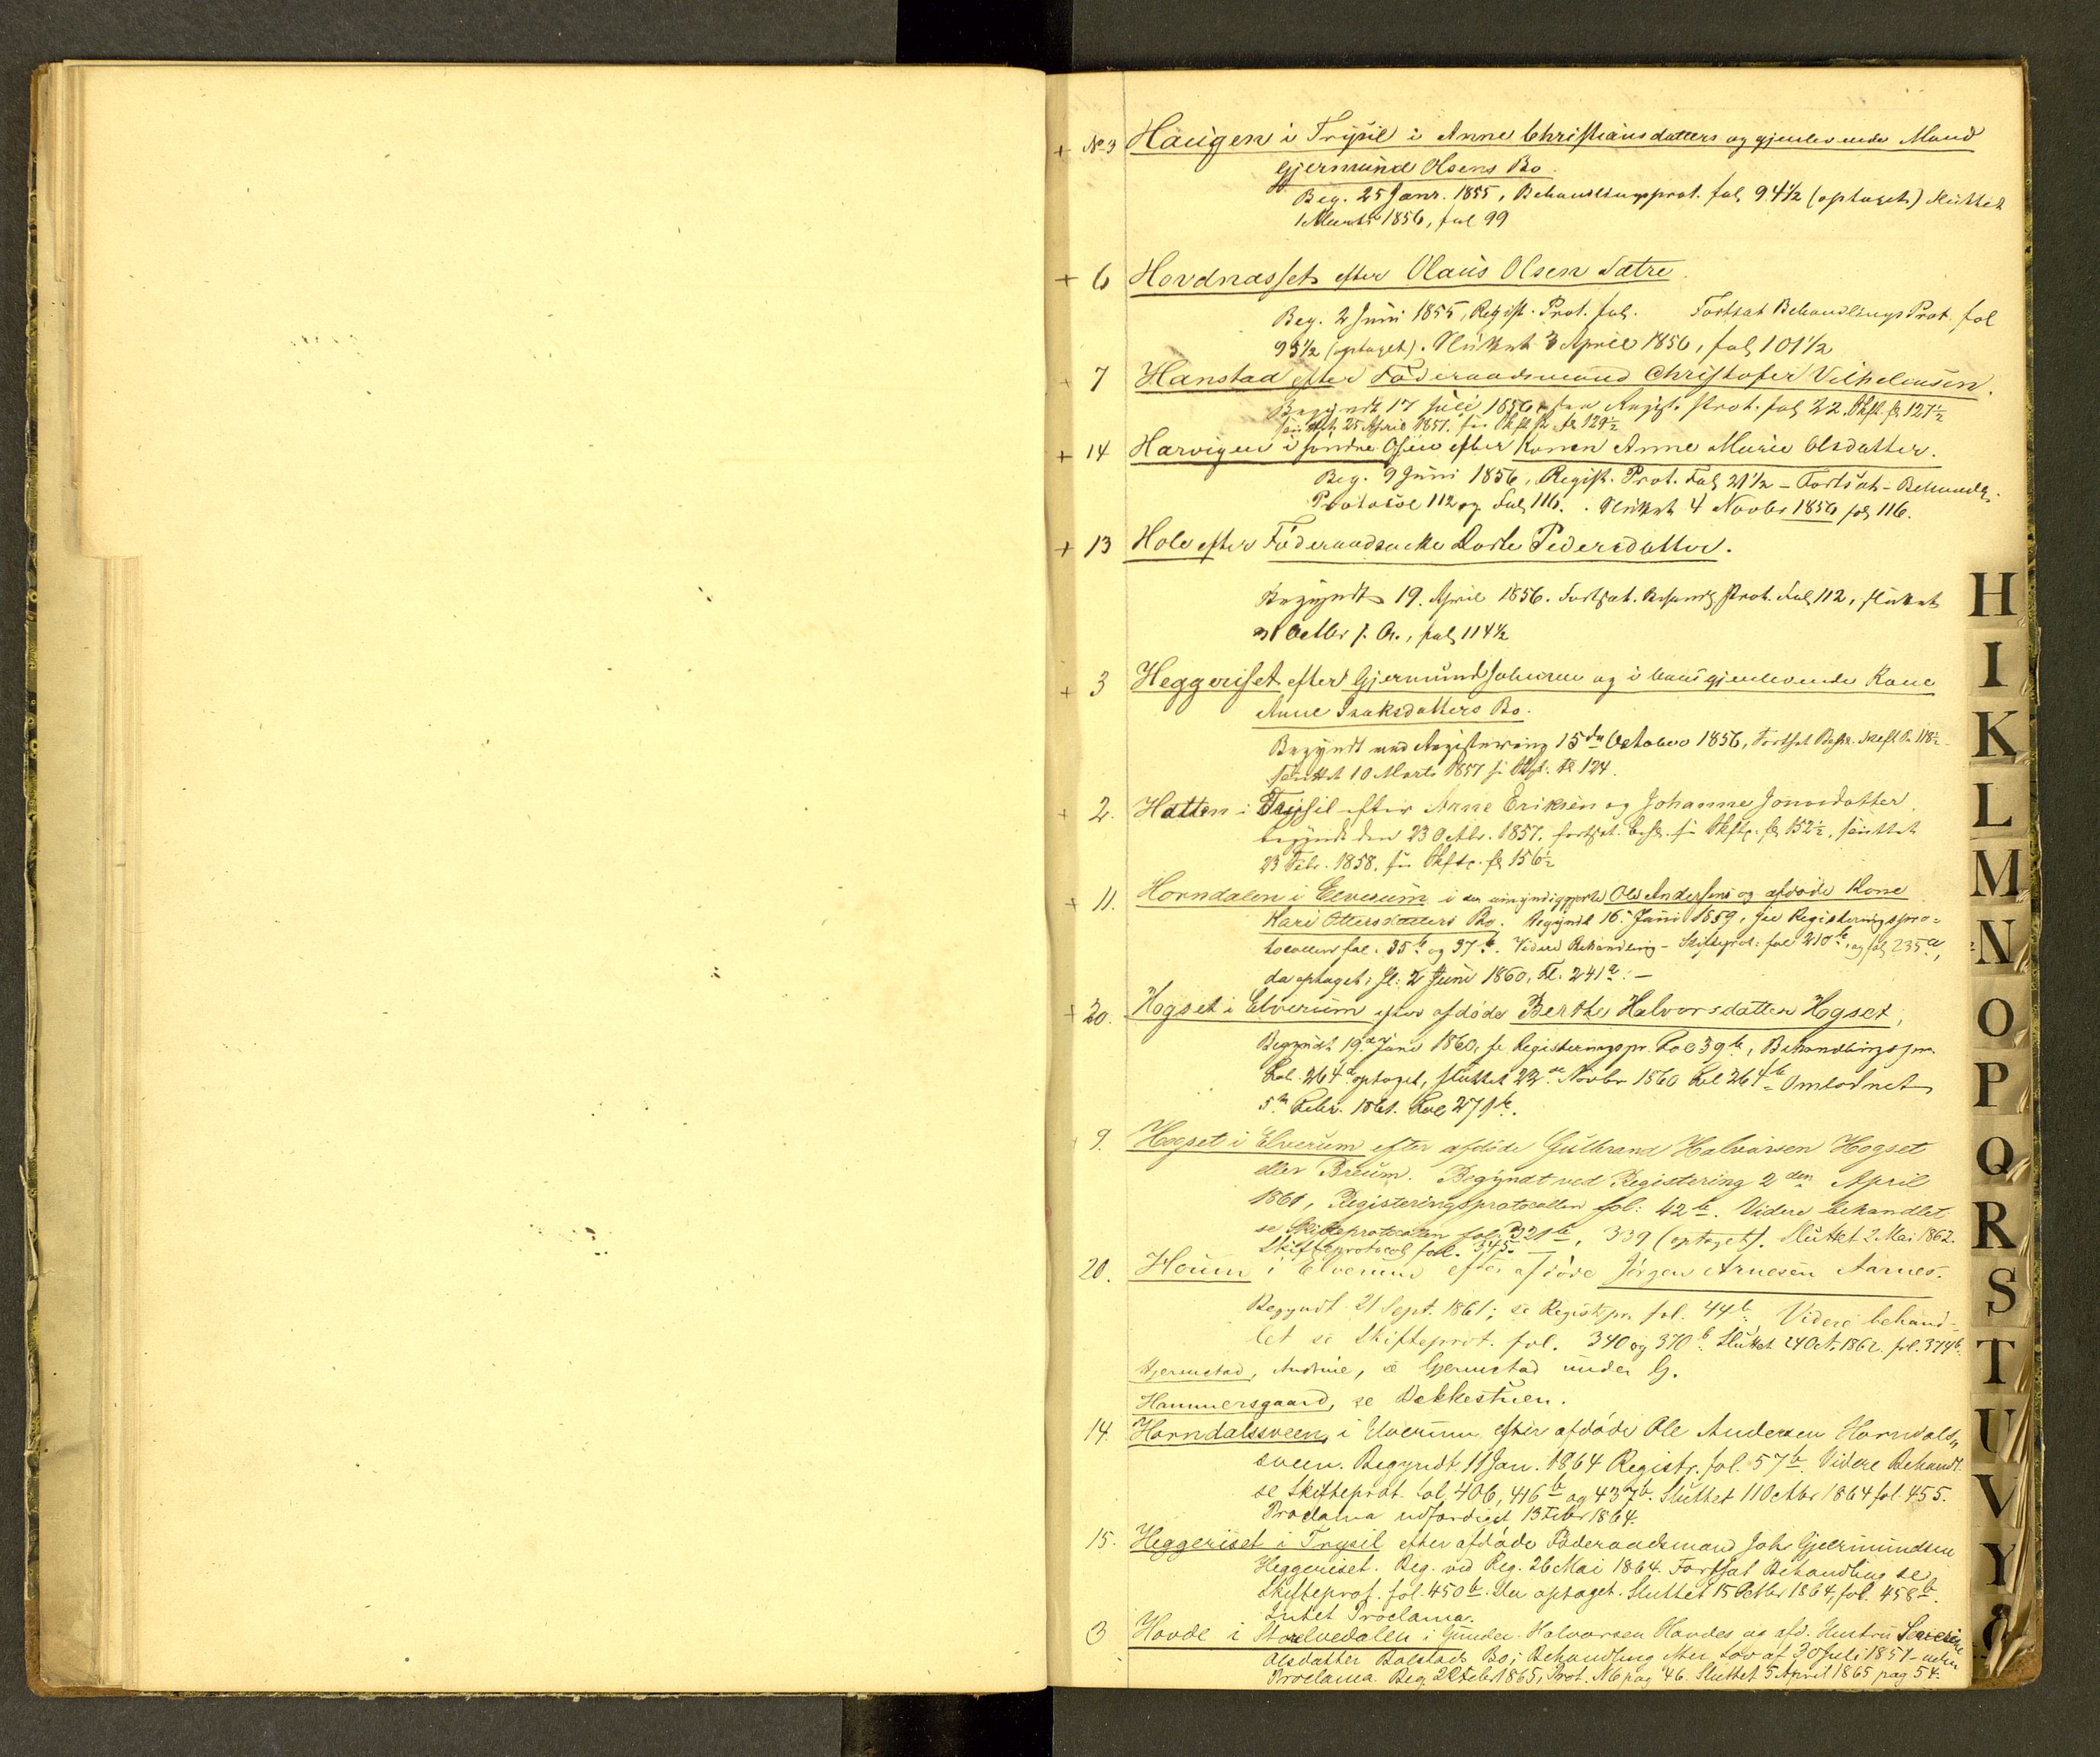 + No 3 Haugen i Trysil i Anne Christiansdatters og gjenlevende Mand
Gjermund Olsens Bo.
Beg. 25 Janr. 1855, Behandlingsprot. fol 94 1/2 (optaget) sluttet
1 Marts 1856, fol 99
+ 6 Hovdnæsset efter Olaus Olsen Sætre.
Beg. 2 Juni 1855, Regist. Prot. fol. Fortsat Behandlings Prot. fol
95 1/2 (optaget). Sluttet 3 April 1856, fol 101 1/2
+ 7 Hanstad efter Föderaadsmand Christofer Vilhelmsen.
Begyndt 17 Juli 1856 Regist. Prot. fol 22. Skft. fl 127 1/2
sluttet 25 April 1857. fl 129 1/2
+ 14 Harvigen i söndre Osen efter Konen Anne Marie Olsdatter.
Beg. 9 Juni 1856, Regist. Prot. Fol 21 1/2 - Fortsat - Behandl.
Protocol 112 og Fol 116. Sluttet 4 Novbr 1856 fol 116.
+ 13 Hole efter Föderaadsenke Dorte Pedersdatter.
Begyndt 19. April 1856. Fortsat. Behandl Prot. Fol 112, sluttet
31 Octbr s. A., fol 114 1/2
+ 3 Heggeriset efter Gjermund Johnsen og i hans gjenlevende Kone
Anne Isaksdatters Bo.
Begyndt med Registrering 15de October 1856, Fortsat 118 1/2
sluttet 10 Marts 1857 fl 124.
+ 2. Hatten i Trysil efter Arne Eriksen og Johanne Jonsdatter
begyndt den 23 Octbr. 1857. fortsat. fl 152 1/2, sluttet
23 Febr. 1858. fl 156 1/2
+ 11. Horndalen i Elverum i den umyndiggjorte Ole Andersens og afdöde Kone
Kari Ottersdatters Bo. Begyndt 16. Juni 1859, se Registeringspro=
tocollen fol. 35b og 37b. Videre Behandling - Skifteprot: fol 210b, og fol 235a,
da optaget; sl: 2 Juni 1860, Fl. 241a: —
+ 20. Hogset i Elverum efter afdöde Berthe Halvorsdatter Hogset,
Begyndt 19de Juni 1860, se Registeringspr. Fol 39b, Behandlingspr.
Fol. 264a optaget, sluttet 22de Novbr 1860 Fol 264b - Omlodnet
5te Febr. 1861. Fol 271b.
+ 9. Hogset i Elverum efter afdöde Gulbrand Halvorsen Hogset
eller Breum. Begyndt ved Registering 2den April
1861, Registeringsprotocollen fol: 42b. Videre behandlet
se Skifteprotocollen fol. 321b, 339 (optaget). Sluttet 2 Mai 1862.
Skifteprotocol fol. 345.
20. Houm i Elverum efter afdöde Jörgen Arnesen Aarnes.
Begyndt 21 Sept. 1861; se Registpr. fol. 44b. Videre behand-
let se Skifteprot. fol. 340 og 370b. Sluttet 24 Oct 1862. fol. 374b.
Hjermstad, Andrine, se Gjermstad under G.
Hammersgaard, se Bakkestuen.
14. Horndalssveen, i Elverum efter afdöde Ole Andersen Horndals„
sveen. Begyndt 11 Jan. 1864 Registr. fol. 57b. Videre Behandl.
se Skifteprot. fol. 406, 416b og 437b. Sluttet 11 Octbr 1864 fol. 455.
Proclama udfærdiget 13 Febr 1864.
15. Heggeriset i Trysil efter afdöde Föderaadsmand Joh. Gjermundsen
Heggeriset. Beg. ved Reg. 26 Mai 1864. Fortsat Behandling se
Skifteprot. fol. 450b. Da optaget. Sluttet 15 Octbr 1864, fol. 458b.
Intet Proclama.
3 Hovde i Storelvedalen i Gunder Halvorsen Hovdes og afd. Hustru
Olsdatter Bolstads Bo; Behandling efter Lov af 30 Juli 1851 - uden
Proclama. Beg. Febr 1865, Prot. N 6 pag 46. Sluttet 5 April 1865 pag 54.
H
I
K
L
M
N
O
P
Q
R
S
T
U
V
Y